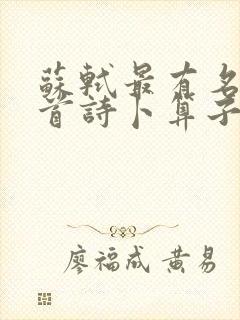 蘇軾最有名
首詩卜算子
廖福成 黃易